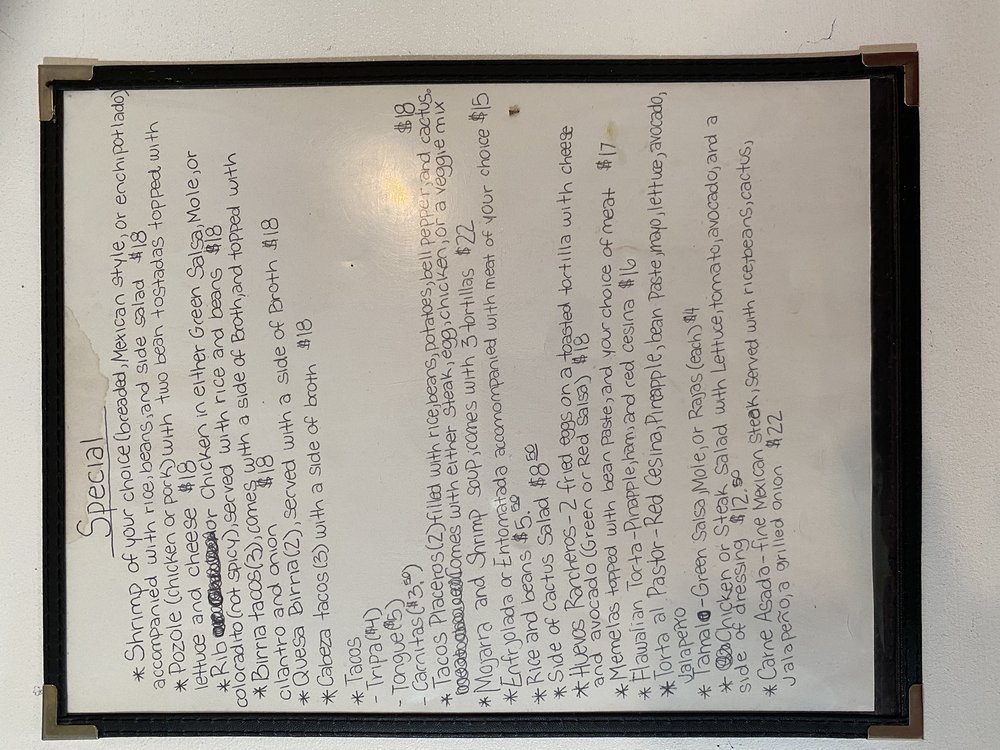 Special
* Shrimp of your choice (breaded, Mexican style, or enchipotlado)
accompanied with rice, beans, and side salad $18
* Pozole (chicken or pork) with two bean tostadas topped with
lettuce and cheese $18
* Rib or Chicken in either Green Salsa, Mole, or
coloradito (not spicy), served with rice and beans $18
* Birria tacos (3), comes with a side of Broth, and topped with
cilantro and onion $18
* Quesa Birria (2), served with a side of Broth $18
* Cabeza tacos (3) with a side of broth $18
* Tacos
- Tripa ($4)
- Tongue ($5)
- Carnitas ($3.50)
* Tacos Placeros (2) filled with rice, beans, potatoes, bell pepper, and cactus. $18
comes with either steak, egg, chicken, or a veggie mix
* Mojarra and Shrimp soup, comes with 3 tortillas $22
* Enfrijolada or Entomatada accnompanied with meat of your choice $15
* Rice and beans $5.50
* Side of Cactus Salad $8.50
* Huevos Rancheros - 2 fried eggs on a toasted tortilla with cheese
and avocado (Green or Red Salsa) $18
* Memelas topped with bean Paste, and your choice of meat $17
* Hawaiian Torta - Pinapple, ham, and red cesina $16
* Torta al Pastor - Red Cesina, Pineapple, bean Paste, mayo, lettuce, avocado,
Jalapeño
* Tamal - Green Salsa, Mole, or Rajas (each) $4
* Chicken or Steak Salad with Lettuce, tomato, avocado, and a
side of dressing $12.50
* Carne Asada - fine Mexican steak, served with rice, beans, cactus,
jalapeño, a grilled onion $22